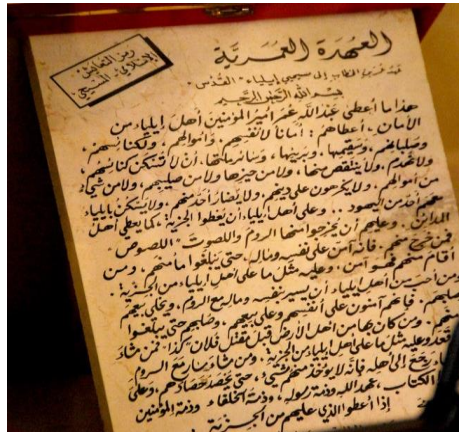 رمز التعايش
الإسلامي المسيحي
العهدة العمرية
من عمر بن الخطاب إلى مسيحيي إيلياء - القدس
بسم الله الرحمن الرحيم
هذا ما أعطى عبد الله عمر أمير المؤمنين أهل إيلياء من
الأمان، أعطاهم: أماناً لأنفسهم وأموالهم، ولكنائسهم
وصلبانهم، وسقيمها، وبريئها، وسائر ملتها، أن لا تسكن كنائسهم،
ولا تهدم، ولا ينتقص منها، ولا من حيزها ولا من صليبهم، ولا من شيء
من أموالهم. ولا يكرهون على دينهم، ولا يضار أحد منهم، ولا يسكن بإيلياء
معهم أحد من اليهود.. وعلى أهل إيلياء أن يعطوا الجزية، كما يعطي أهل
المدائن. وعليهم أن يخرجوا منها الروم واللصوت - اللصوص.
فمن خرج منهم، فإنه آمن على نفسه وماله، حتى يبلغوا مأمنهم، ومن
أقام منهم فهو آمن، وعليه مثل ما على أهل إيلياء من الجزية.
ومن أحب من أهل إيلياء أن يسير بنفسه وماله مع الروم، ويخلي بيعهم
وصلبهم، فإنهم آمنون على أنفسهم وعلى بيعهم، وصلبهم حتى يبلغوا
مأمنهم، ومن كان بها من أهل الأرض قبل مقتل فلان، فمن شاء
قعد وعليه مثل ما على أهل إيلياء من الجزية، ومن شاء سار مع الروم
رجع إلى أهله فإنه لا يؤخذ منهم شيء، حتى يحصد حصادهم، وعلى
الكتاب، عهد الله وذمة رسوله، وذمة الخلفاء، وذمة المؤمنين
إذا أعطوا الذي عليهم من الجزية.